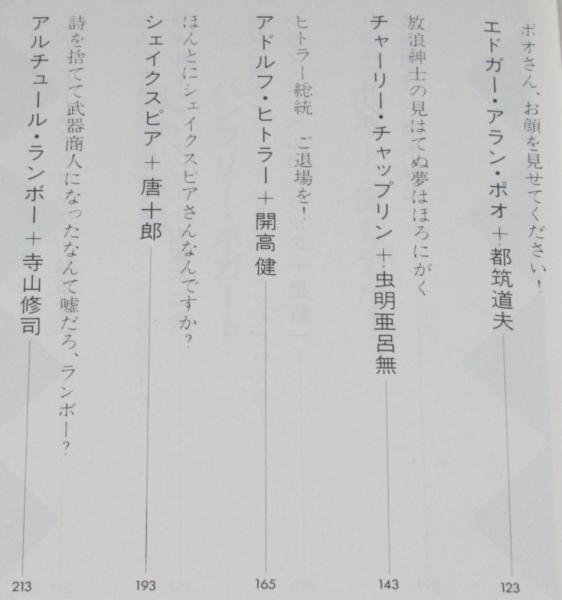 ポオさん、お顔を見せてください!
エドガー・アラン・ポオ+都筑道夫 123
放浪紳士の見はてぬ夢はほろにがく
チャーリー・チャップリン+虫明亜呂無 143
ヒトラー総統 ご退場を!
アドルフ・ヒトラー+開高健 165
ほんとにシェイクスピアさんなんですか?
シェイクスピア+唐十郎 193
詩を捨てて武器商人になったなんて嘘だろ、ランボー?
アルチュール・ランボー+寺山修司 213